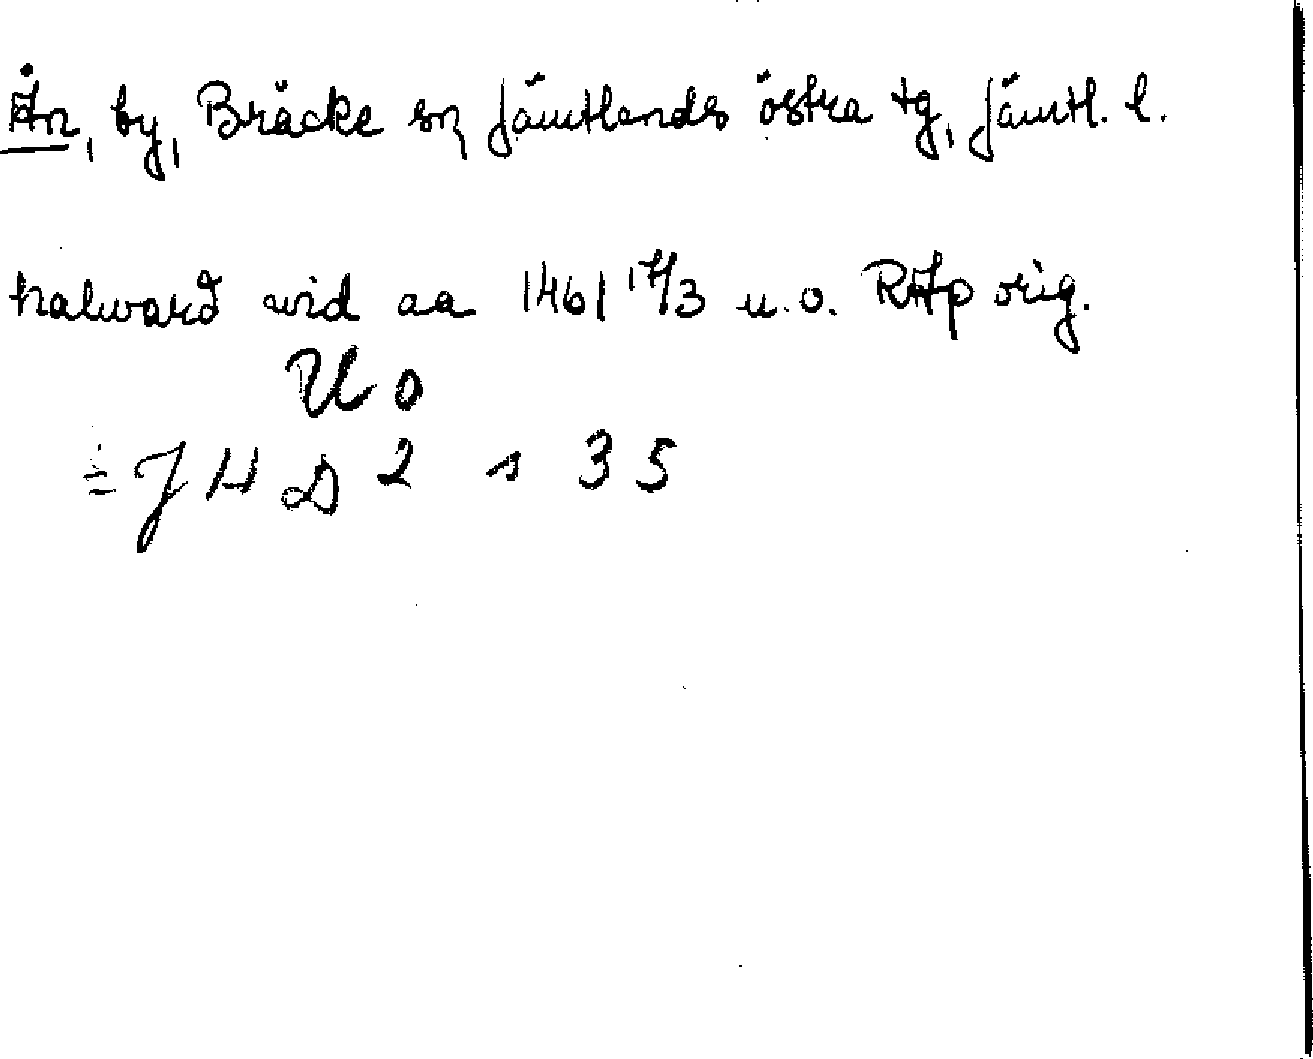 Ån, by, Bräcke sn, Jämtlands östra tg, Jämtl. l.
halward wid aa 1461 17/3 u. o. RAp orig.
U o
= JHD 2 s 35